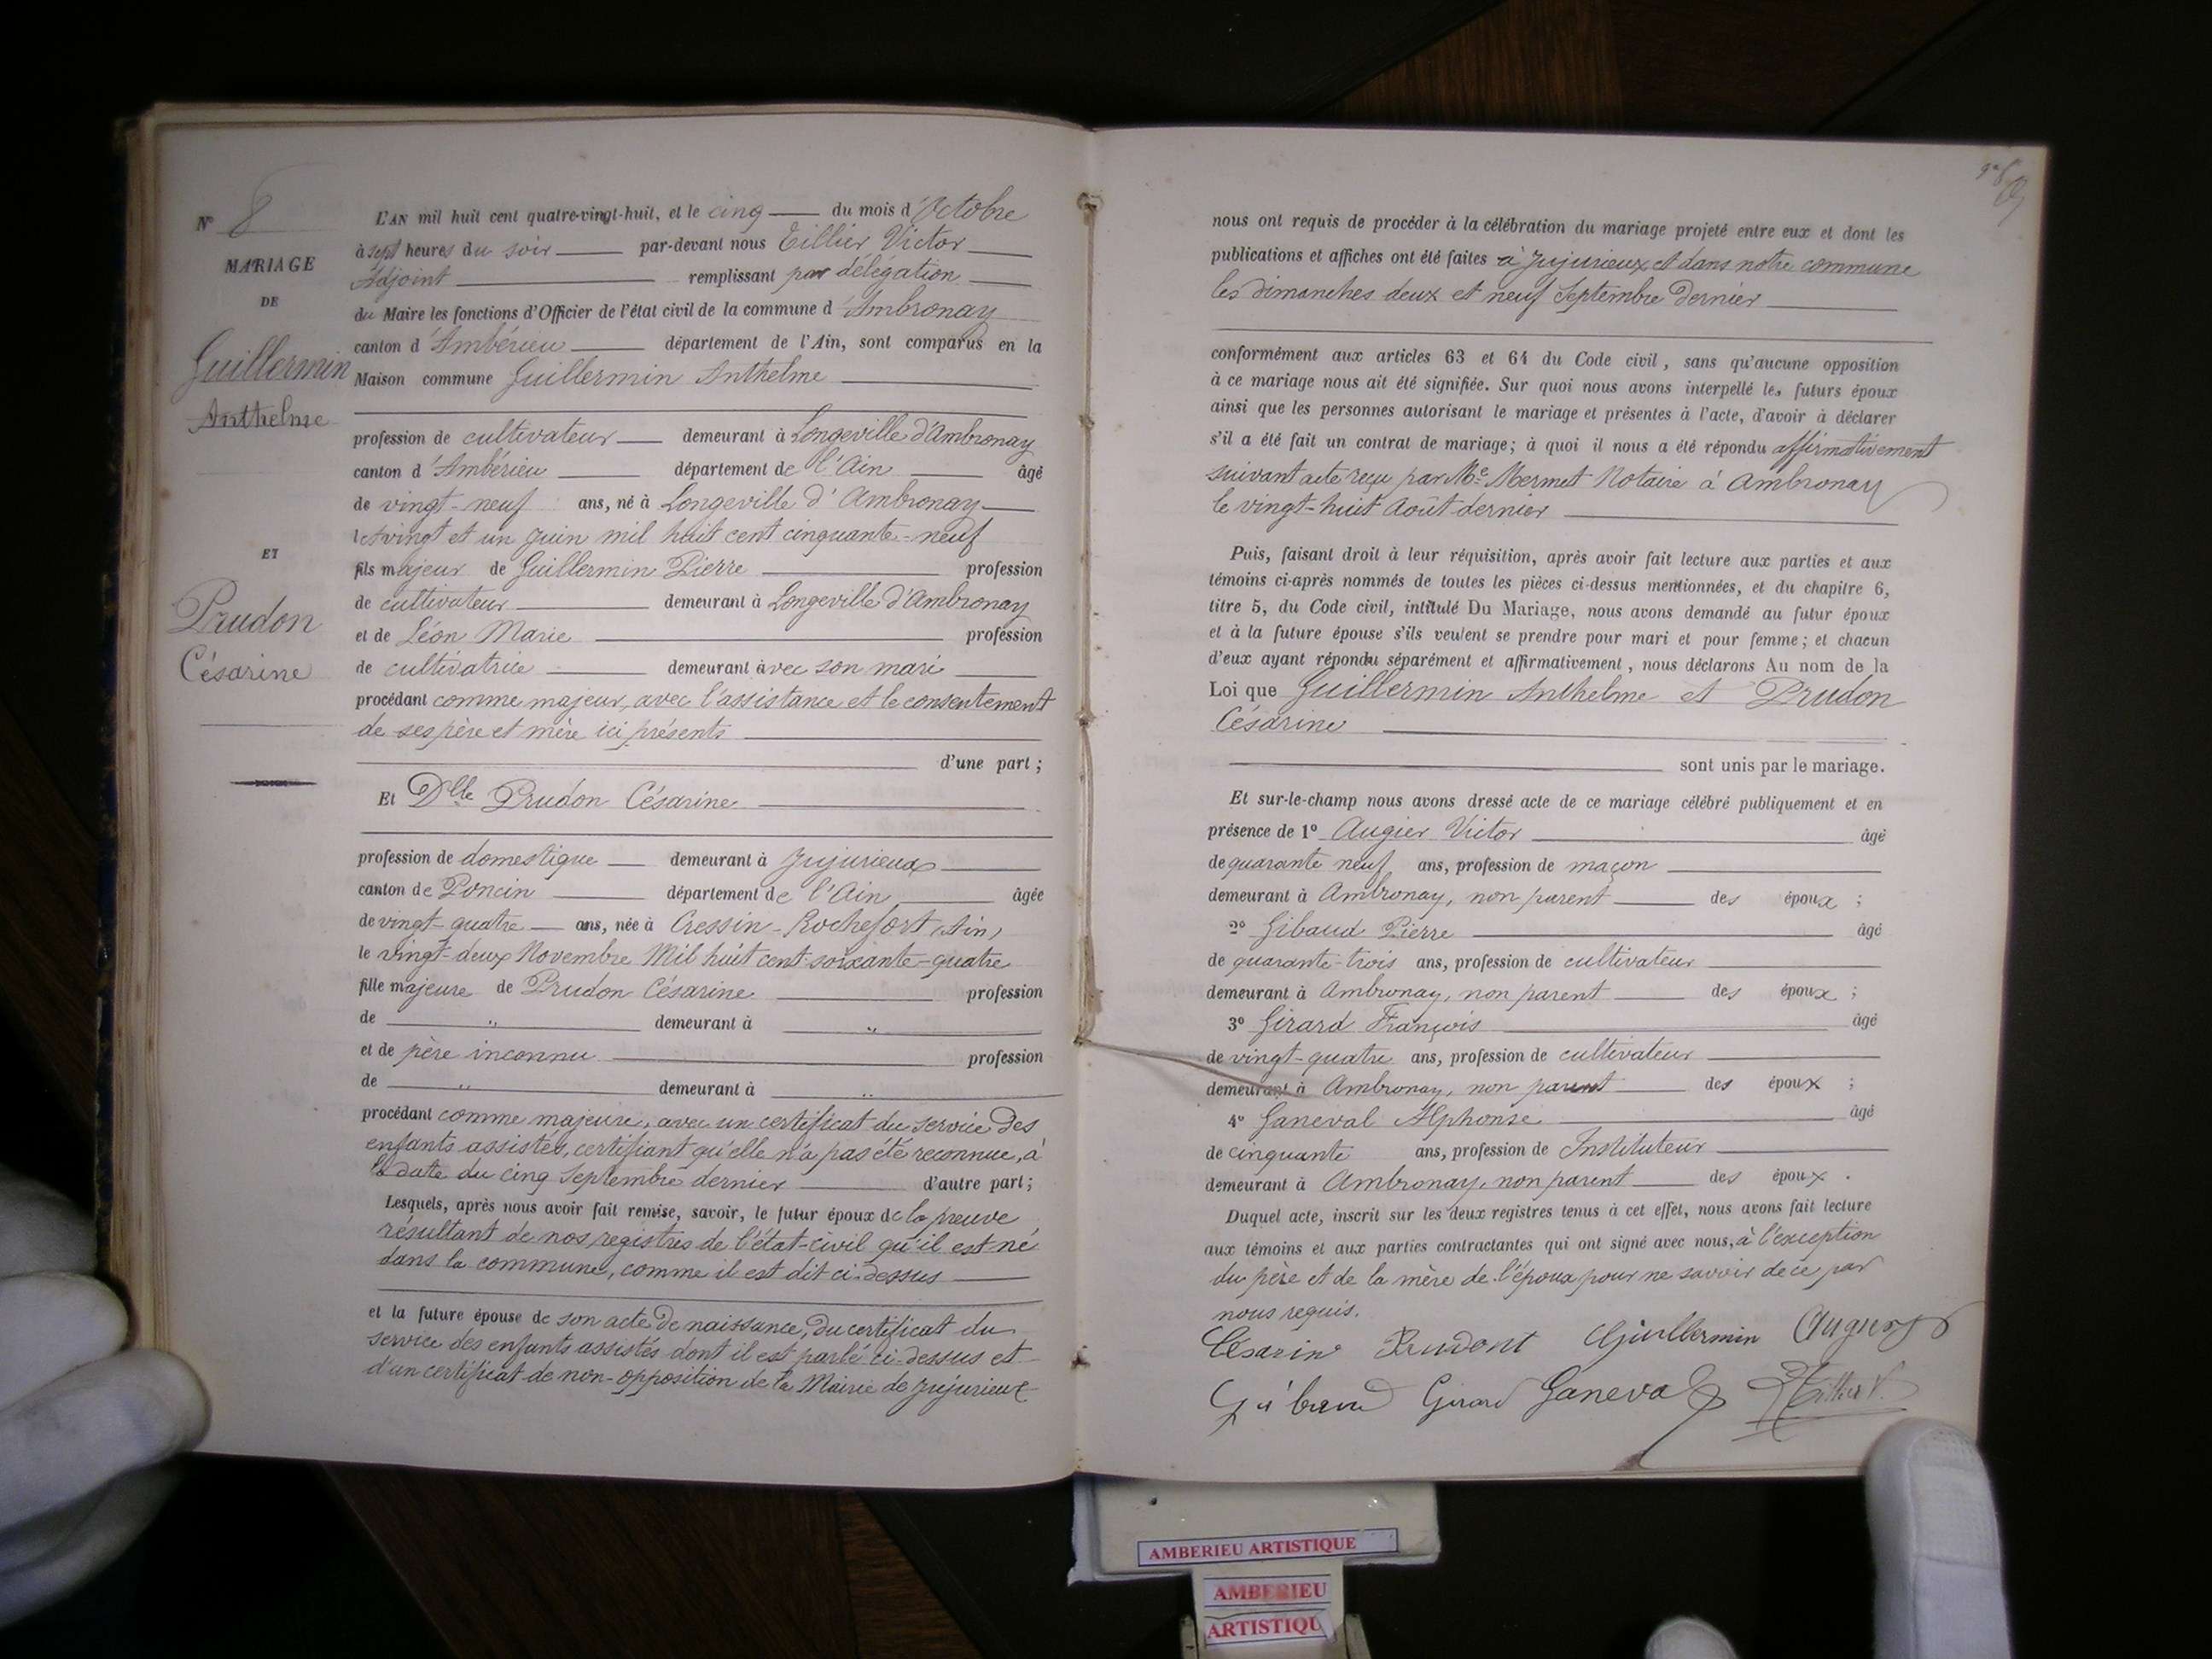 N° 8
MARIAGE
DE
Guillermin
Anthelme
ET
Prudon
Césarine
L'AN mil huit cent quatre-vingt-huit, et le cinq du mois d'Octobre
à sept heures du soir par-devant nous Tillier Victor
Adjoint remplissant par délégation
du Maire les fonctions d'Officier de l'état civil de la commune d'Ambronay
canton d'Ambérieu département de l'Ain, sont comparus en la
Maison commune Guillermin Anthelme
profession de cultivateur demeurant à Longeville d'Ambronay
canton d'Ambérieu département de l'Ain âgé
de vingt-neuf ans, né à Longeville d'Ambronay
le vingt et un juin mil huit cent cinquante-neuf
fils majeur de Guillermin Pierre profession
de cultivateur demeurant à Longeville d'Ambronay
et de Léon Marie profession
de cultivatrice demeurant avec son mari
procédant comme majeur, avec l'assistance et le consentement
de ses père et mère ici présents
d'une part ;
Et Dlle Prudon Césarine
profession de domestique demeurant à Jujurieux
canton de Poncin département de l'Ain âgée
de vingt-quatre ans, née à Cressin-Rochefort (Ain)
le vingt-deux Novembre Mil huit cent soixante-quatre
fille majeure de Prudon Césarine profession
de " demeurant à "
et de père inconnu profession
de " demeurant à "
procédant comme majeure, avec un certificat du service des
enfants assistés, certifiant qu'elle n'a pas été reconnue, à
la date du cinq Septembre dernier d'autre part ;
Lesquels, après nous avoir fait remise, savoir, le futur époux de la preuve
résultant de nos registres de l'état-civil qu'il est né
dans la commune, comme il est dit ci-dessus
et la future épouse de son acte de naissance, du certificat du
service des enfants assistés dont il est parlé ci-dessus et
d'un certificat de non-opposition de la Mairie de Jujurieux
nous ont requis de procéder à la célébration du mariage projeté entre eux et dont les
publications et affiches ont été faites à Jujurieux et dans notre commune
les dimanches deux et neuf Septembre dernier
conformément aux articles 63 et 64 du Code civil, sans qu'aucune opposition
à ce mariage nous ait été signifiée. Sur quoi nous avons interpellé les futurs époux
ainsi que les personnes autorisant le mariage et présentes à l'acte, d'avoir à déclarer
s'il a été fait un contrat de mariage ; à quoi il nous a été répondu affirmativement
suivant acte reçu par Me Mermet Notaire à Ambronay
le vingt-huit Août dernier
Puis, faisant droit à leur réquisition, après avoir fait lecture aux parties et aux
témoins ci-après nommés de toutes les pièces ci-dessus mentionnées, et du chapitre 6,
titre 5, du Code civil, intitulé Du Mariage, nous avons demandé au futur époux
et à la future épouse s'ils veulent se prendre pour mari et pour femme ; et chacun
d'eux ayant répondu séparément et affirmativement, nous déclarons Au nom de la
Loi que Guillermin Anthelme et Prudon
Césarine
sont unis par le mariage.
Et sur-le-champ nous avons dressé acte de ce mariage célébré publiquement et en
présence de 1° Augier Victor âgé
de quarante neuf ans, profession de maçon
demeurant à Ambronay, non parent des époux ;
2° Gibaud Pierre âgé
de quarante-trois ans, profession de cultivateur
demeurant à Ambronay, non parent des époux ;
3° Girard François âgé
de vingt-quatre ans, profession de cultivateur
demeurant à Ambronay, non parent des époux ;
4° Ganeval Alphonse âgé
de cinquante ans, profession de Instituteur
demeurant à Ambronay, non parent des époux .
Duquel acte, inscrit sur les deux registres tenus à cet effet, nous avons fait lecture
aux témoins et aux parties contractantes qui ont signé avec nous, à l'exception
du père et de la mère de l'époux pour ne savoir de ce par
nous requis.
Césarine Prudont Guillermin Augier
Gibaud Girard Ganeval Tillier V.
AMBERIEU ARTISTIQUE
AMBERIEU
ARTISTIQU